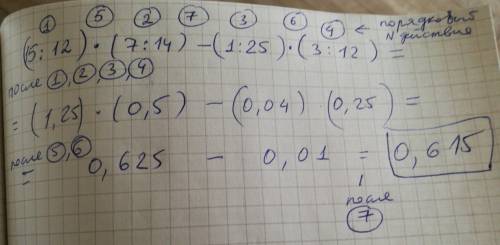 ① ⑤ ② ⑦ ③ ⑥ ④ ← порядковый N действия
(5:12) · (7:14) – (1:25) · (3:12) =
после ①, ②, ③, ④
= (1,25) · (0,5) – (0,04) (0,25) =
после ⑤, ⑥
= 0,625 – 0,01 = 0,615
после
⑦